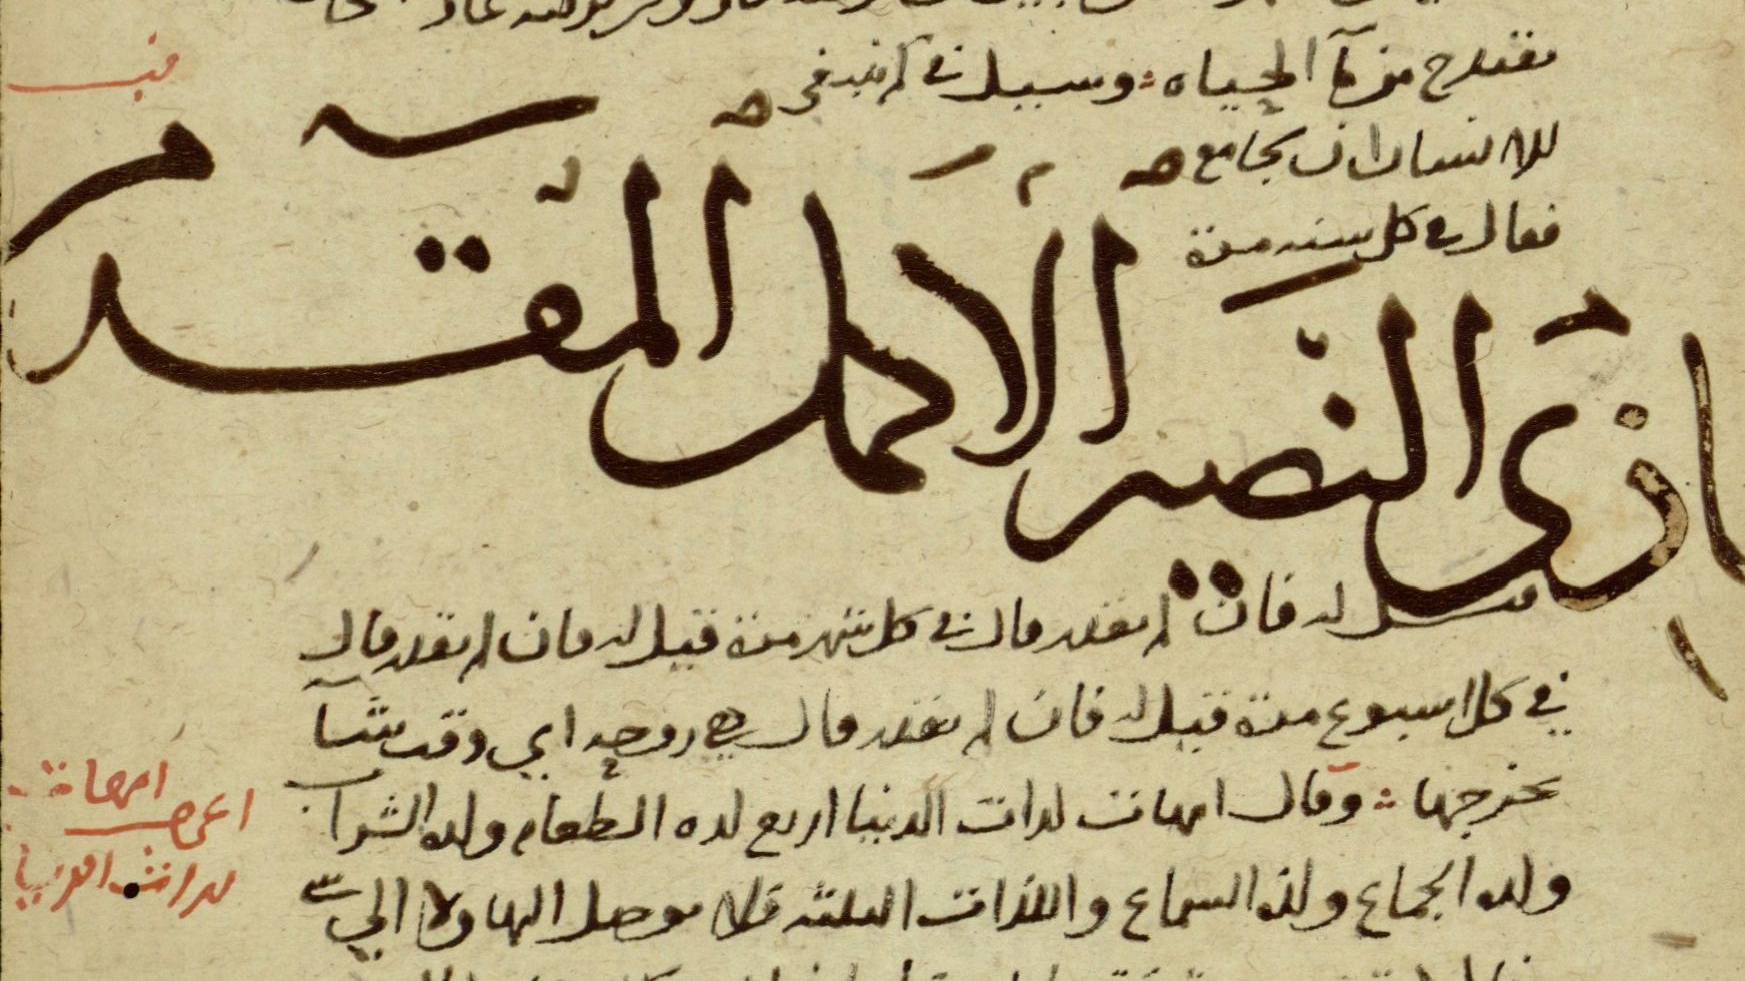 يقتدح من ماء الحياه وسيل في كم ينبغي
للانسان ان يجامع
فقال في كل سنه مرة
الغازى النصير الاكمل المقدم
فقيل له فان لم يقدر قال في كل شهر مرة قيل له فان لم يقدر قال
في كل اسبوع مرة قيل له فان لم يقدر قال هي روحه اي وقت شآ
يخرجها وقال امهات لذات الدنيا اربع لذه الطعام ولذه الشراب
ولذه الجماع ولذه السماع واللذات الثلثه فلا يوصل اليها ولا الي
اعرف امهات
لذات الدنيا